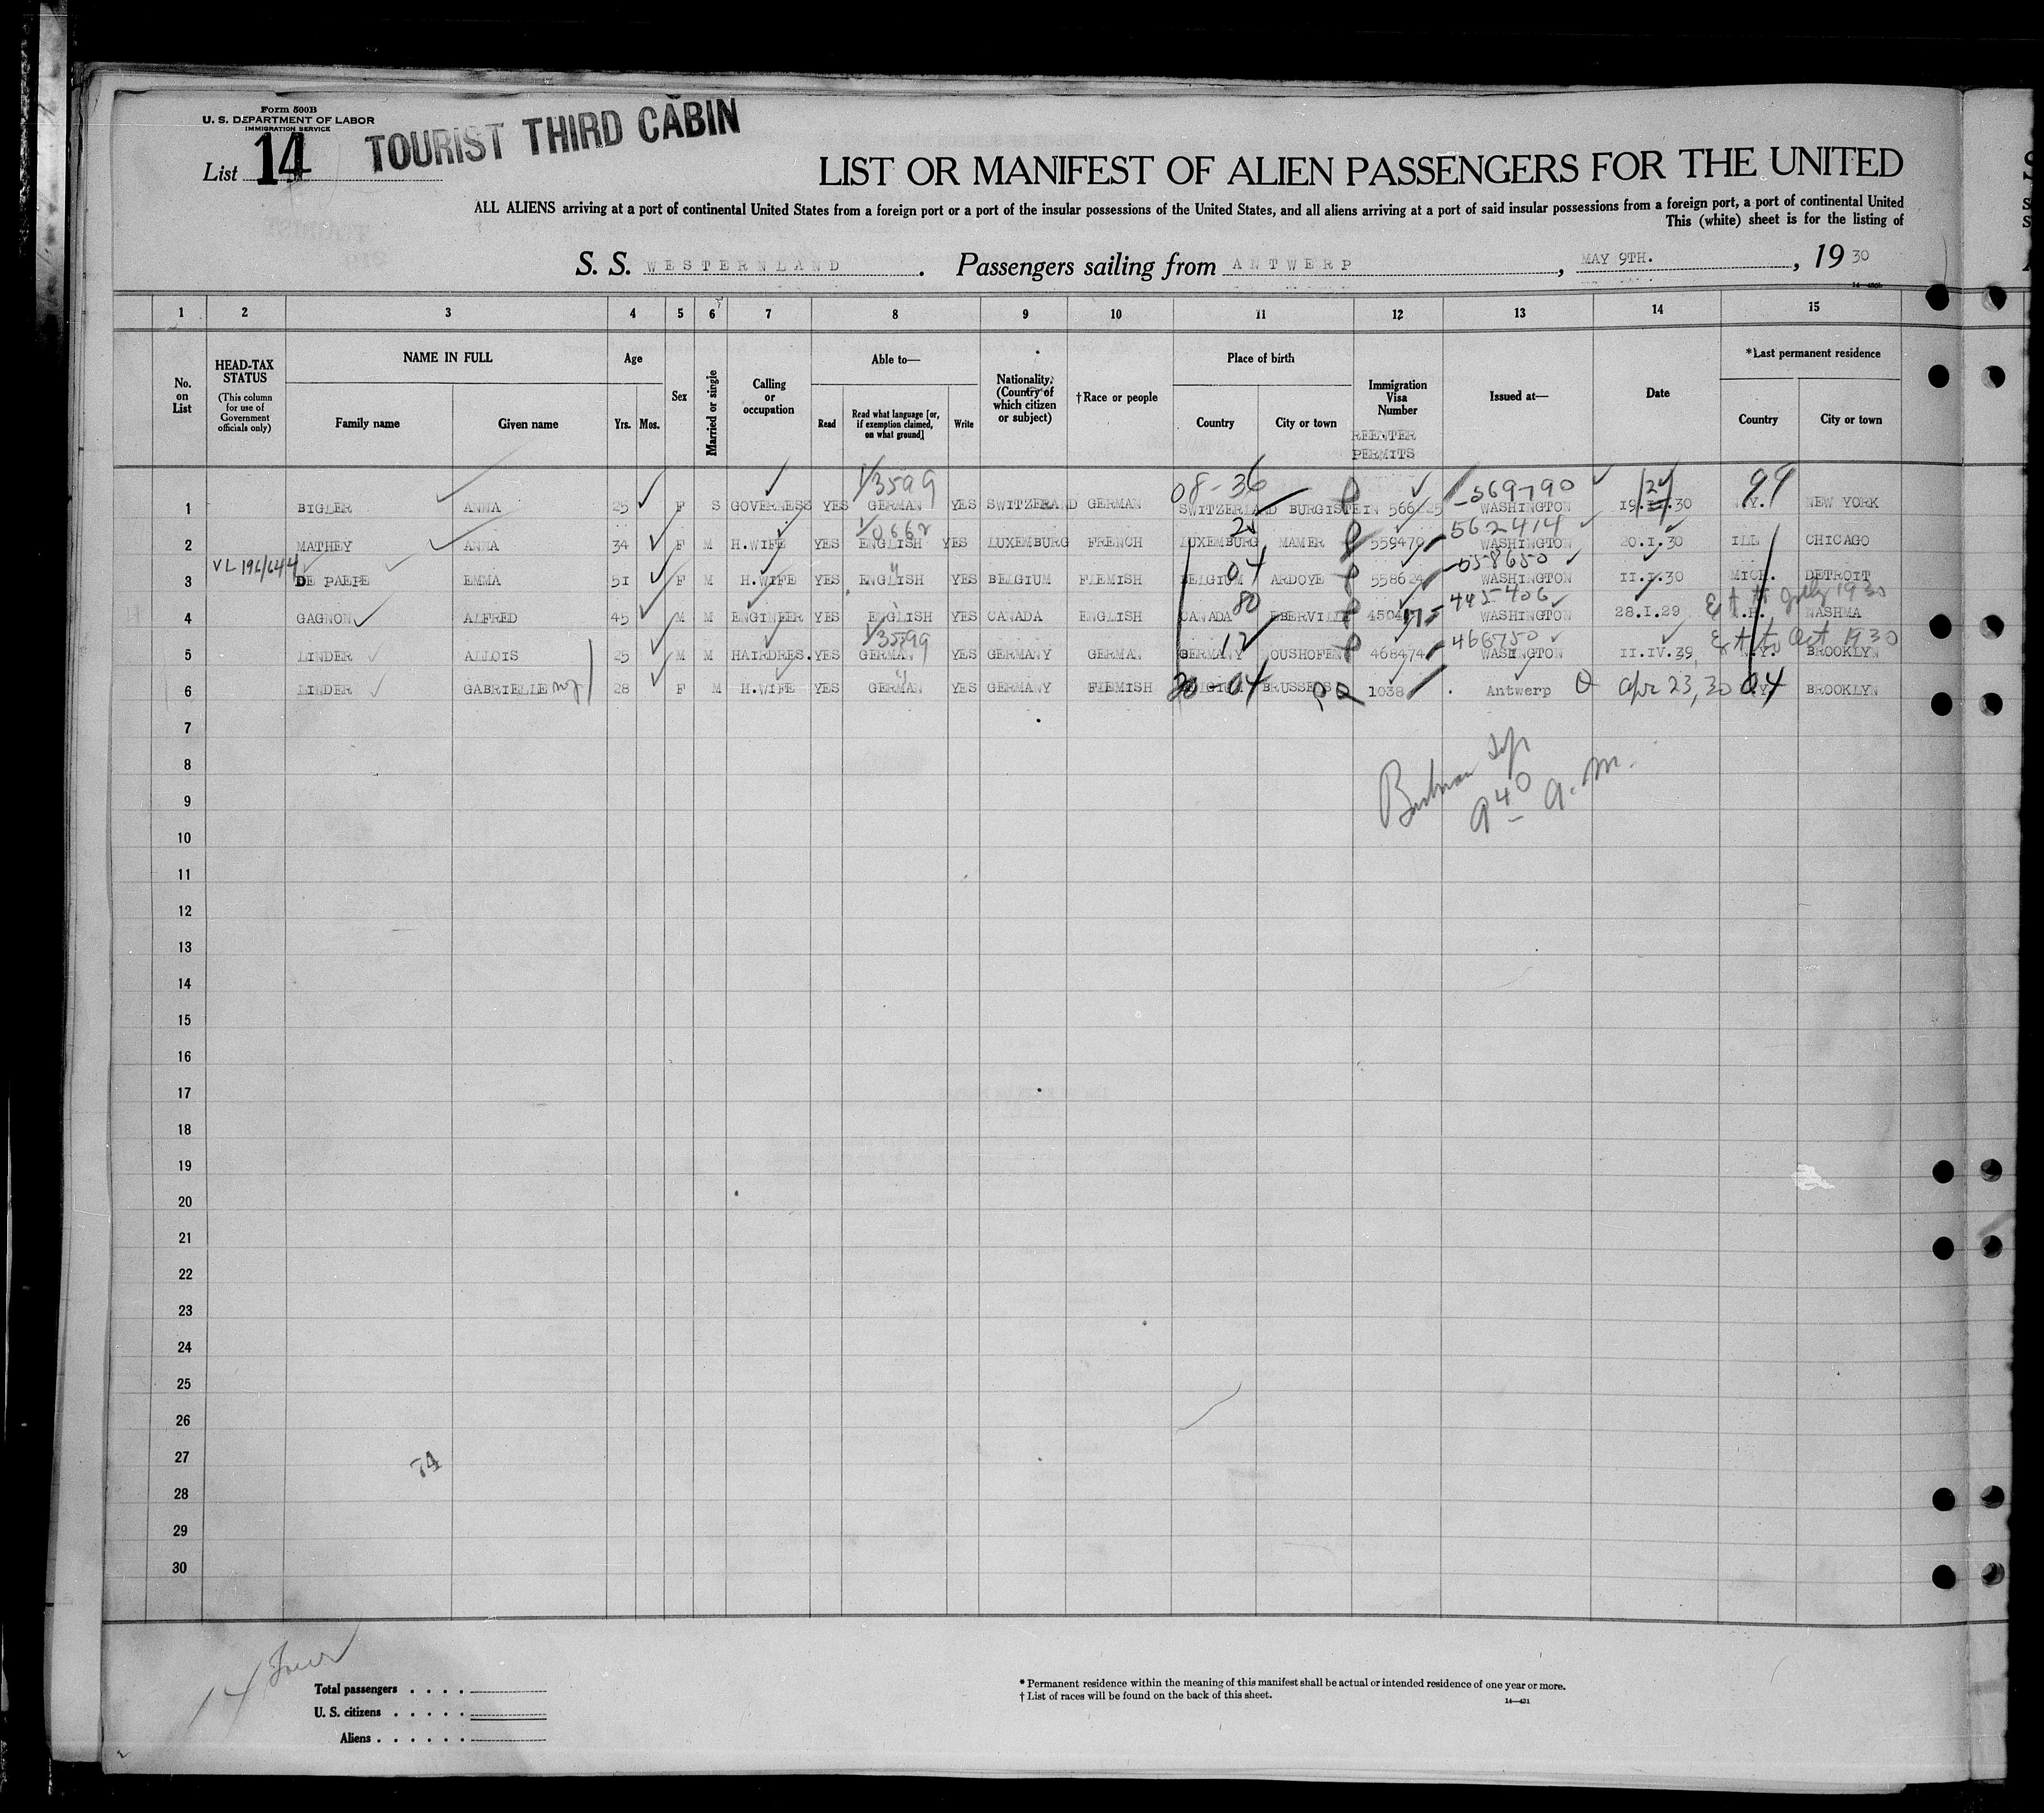 Form 500B
U. S. DEPARTMENT OF LABOR
IMMIGRATION SERVICE
List 14
TOURIST THIRD CABIN
LIST OR MANIFEST OF ALIEN PASSENGERS FOR THE UNITED
ALL ALIENS arriving at a port of continental United States from a foreign port or a port of the insular possessions of the United States, and all aliens arriving at a port of said insular possessions from a foreign port, a port of continental United
This (white) sheet is for the listing of
S. S. WESTERNLAND . Passengers sailing from ANTWERP , MAY 9TH. , 19 30
1 2 3 4 5 6 7 8 9 10 11 12 13 14 15
No. on List
HEAD-TAX STATUS (This column for use of Government officials only)
NAME IN FULL
Family name Given name
Age
Yrs. Mos.
Sex
Married or single
Calling or occupation
Able to—
Read Read what language [or, if exemption claimed, on what ground] Write
Nationality. (Country of which citizen or subject)
†Race or people
Place of birth
Country City or town
Immigration Visa Number
REENTER PERMITS
Issued at—
Date
*Last permanent residence
Country City or town
1/3599 08-36 569790 24 99
1 BIGLER ANNA 25 F S GOVERNESS YES GERMAN YES SWITZERLAND GERMAN SWITZERLAND BURGISTEIN WASHINGTON 30 N.Y. NEW YORK
562414
2 MATHEY ANNA 34 F M H.WIFE YES ENGLISH YES LUXEMBURG FRENCH LUXEMBURG MAMER 559470 WASHINGTON 20.I.30 ILL CHICAGO
VL 196/644 04 558650
3 DE PAEPE EMMA 51 F M H.WIFE YES ENGLISH YES BELGIUM FLEMISH BELGIUM ARDOYE 558624 WASHINGTON II.I.30 MICH. DETROIT
80 445406 Ext to July 1930
4 GAGNON ALFRED 45 M M ENGINEER YES ENGLISH YES CANADA ENGLISH CANADA WASHINGTON 28.I.29 N.H. NASHMA
1/3599 12 466750 Ext to Oct 1930
5 LINDER ALLOIS 25 M M HAIRDRES. YES GERMAN YES GERMANY GERMAN GERMANY 468474 WASHINGTON II.IV.39 N.Y. BROOKLYN
6 LINDER GABRIELLE 28 F M H.WIFE YES GERMAN YES GERMANY FLEMISH 04 BRUSSELS 1038 Antwerp Apr 23, 30 04 BROOKLYN
7
8
9 9 40 a.m.
10
11
12
13
14
15
16
17
18
19
20
21
22
23
24
25
26
27
74
28
29
30
14
Total passengers
U. S. citizens
Aliens
* Permanent residence within the meaning of this manifest shall be actual or intended residence of one year or more.
† List of races will be found on the back of this sheet.
14—431